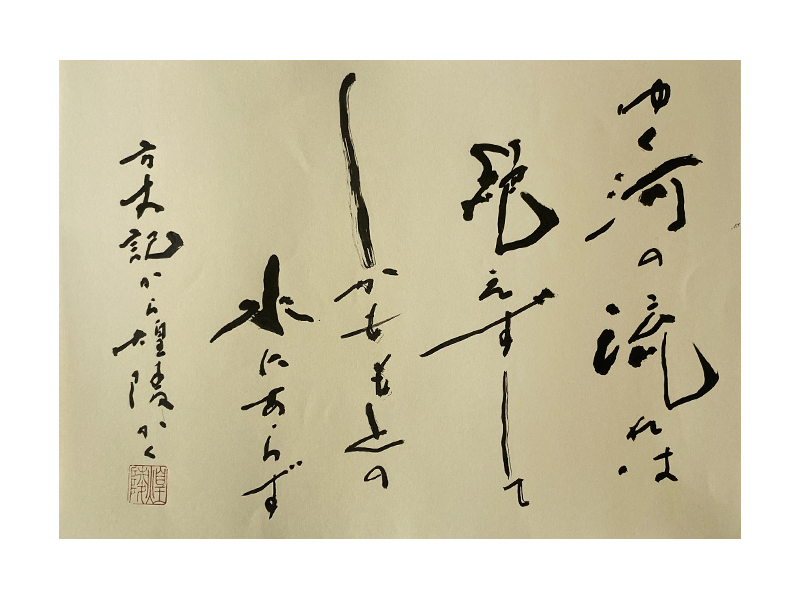 ゆく河の流れは
絶えずして
しかももとの
水にあらず
方丈記から煌陵かく
煌陵